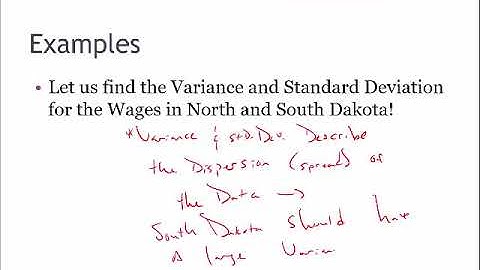 Examples
• Let us find the Variance and Standard Deviation
for the Wages in North and South Dakota!
*Variance & Std. Dev. Describe
the Dispersion (spread) of
the Data →
South Dakota should have
A large Varian